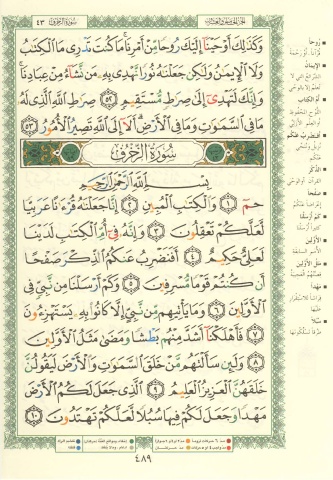 سورة الزخرف ٤٣
وَكَذَٰلِكَ أَوْحَيْنَا إِلَيْكَ رُوحًا مِّنْ أَمْرِنَا مَا كُنتَ تَدْرِي مَا الْكِتَابُ
وَلَا الْإِيمَانُ وَلَٰكِن جَعَلْنَاهُ نُورًا نَّهْدِي بِهِ مَن نَّشَاءُ مِنْ عِبَادِنَا
وَإِنَّكَ لَتَهْدِي إِلَىٰ صِرَاطٍ مُّسْتَقِيمٍ ٥٢ صِرَاطِ اللَّهِ الَّذِي لَهُ
مَا فِي السَّمَاوَاتِ وَمَا فِي الْأَرْضِ أَلَا إِلَى اللَّهِ تَصِيرُ الْأُمُورُ ٥٣
سورة الزخرف
بِسْمِ اللَّهِ الرَّحْمَٰنِ الرَّحِيمِ
حم ١ وَالْكِتَابِ الْمُبِينِ ٢ إِنَّا جَعَلْنَاهُ قُرْءَانًا عَرَبِيًّا
لَّعَلَّكُمْ تَعْقِلُونَ ٣ وَإِنَّهُ فِي أُمِّ الْكِتَابِ لَدَيْنَا
لَعَلِيٌّ حَكِيمٌ ٤ أَفَنَضْرِبُ عَنكُمُ الذِّكْرَ صَفْحًا
أَن كُنتُمْ قَوْمًا مُّسْرِفِينَ ٥ وَكَمْ أَرْسَلْنَا مِن نَّبِيٍّ فِي
الْأَوَّلِينَ ٦ وَمَا يَأْتِيهِم مِّن نَّبِيٍّ إِلَّا كَانُوا بِهِ يَسْتَهْزِءُونَ
٧ فَأَهْلَكْنَا أَشَدَّ مِنْهُم بَطْشًا وَمَضَىٰ مَثَلُ الْأَوَّلِينَ
٨ وَلَئِن سَأَلْتَهُم مَّنْ خَلَقَ السَّمَاوَاتِ وَالْأَرْضَ لَيَقُولُنَّ
خَلَقَهُنَّ الْعَزِيزُ الْعَلِيمُ ٩ الَّذِي جَعَلَ لَكُمُ الْأَرْضَ
مَهْدًا وَجَعَلَ لَكُمْ فِيهَا سُبُلًا لَّعَلَّكُمْ تَهْتَدُونَ ١٠
٤٨٩